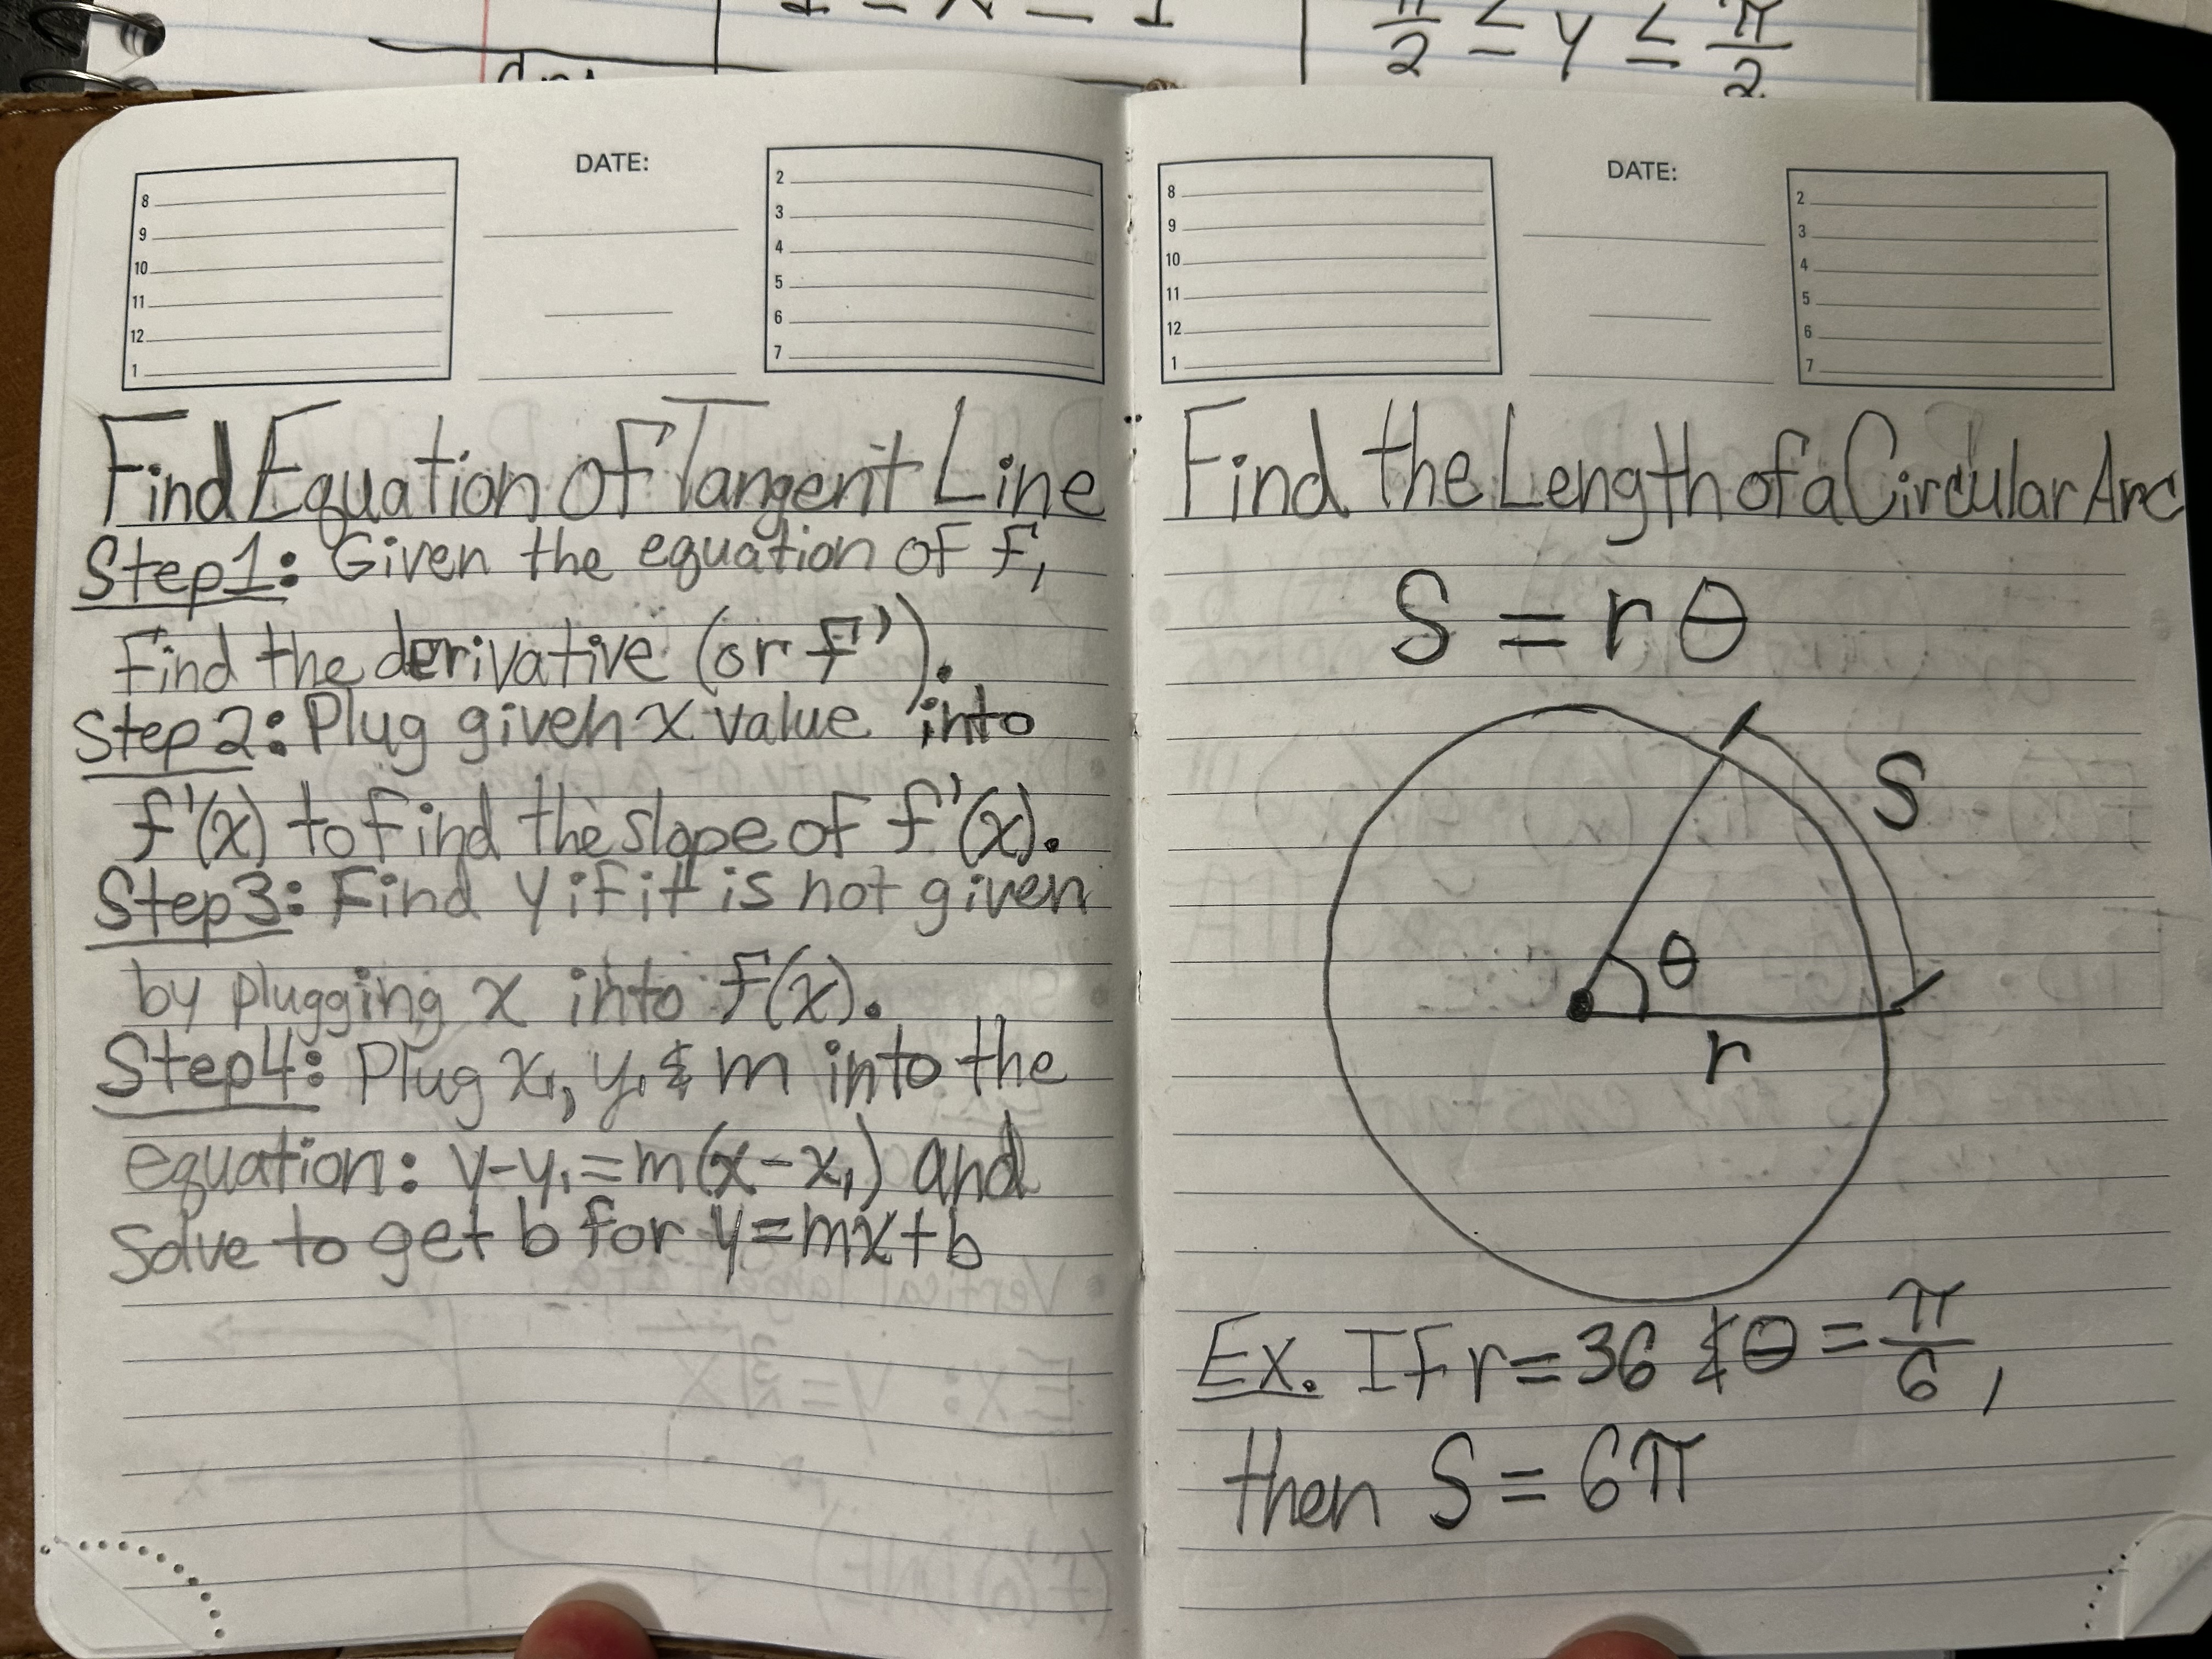 DATE:
8
9
10
11
12
1
2
3
4
5
6
7
Find Equation of Tangent Line
Step 1: Given the equation of f,
find the derivative (or f').
Step 2: Plug given x value into
f'(x) to find the slope of f'(x).
Step 3: Find y if it is not given
by plugging x into f(x).
Step 4: Plug x₁, y₁ & m into the
equation: y-y₁=m(x-x₁) and
Solve to get b for y=mx+b
DATE:
8
9
10
11
12
1
2
3
4
5
6
7
Find the Length of a Circular Arc
S = rθ
S
θ
r
Ex. If r=36 & θ=π/6,
then S = 6π
π/2 ≤ y ≤ π/2